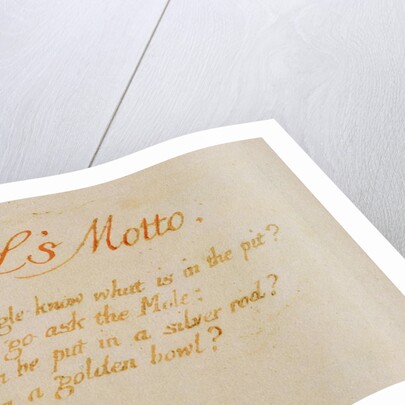 L's Motto.
gle know what is in the pit?
go ask the Mole:
n be put in a silver rod?
n a golden bowl?